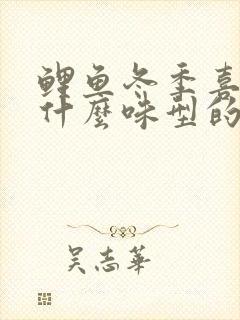 鲤鱼冬季喜
什麼味型的
吴志華